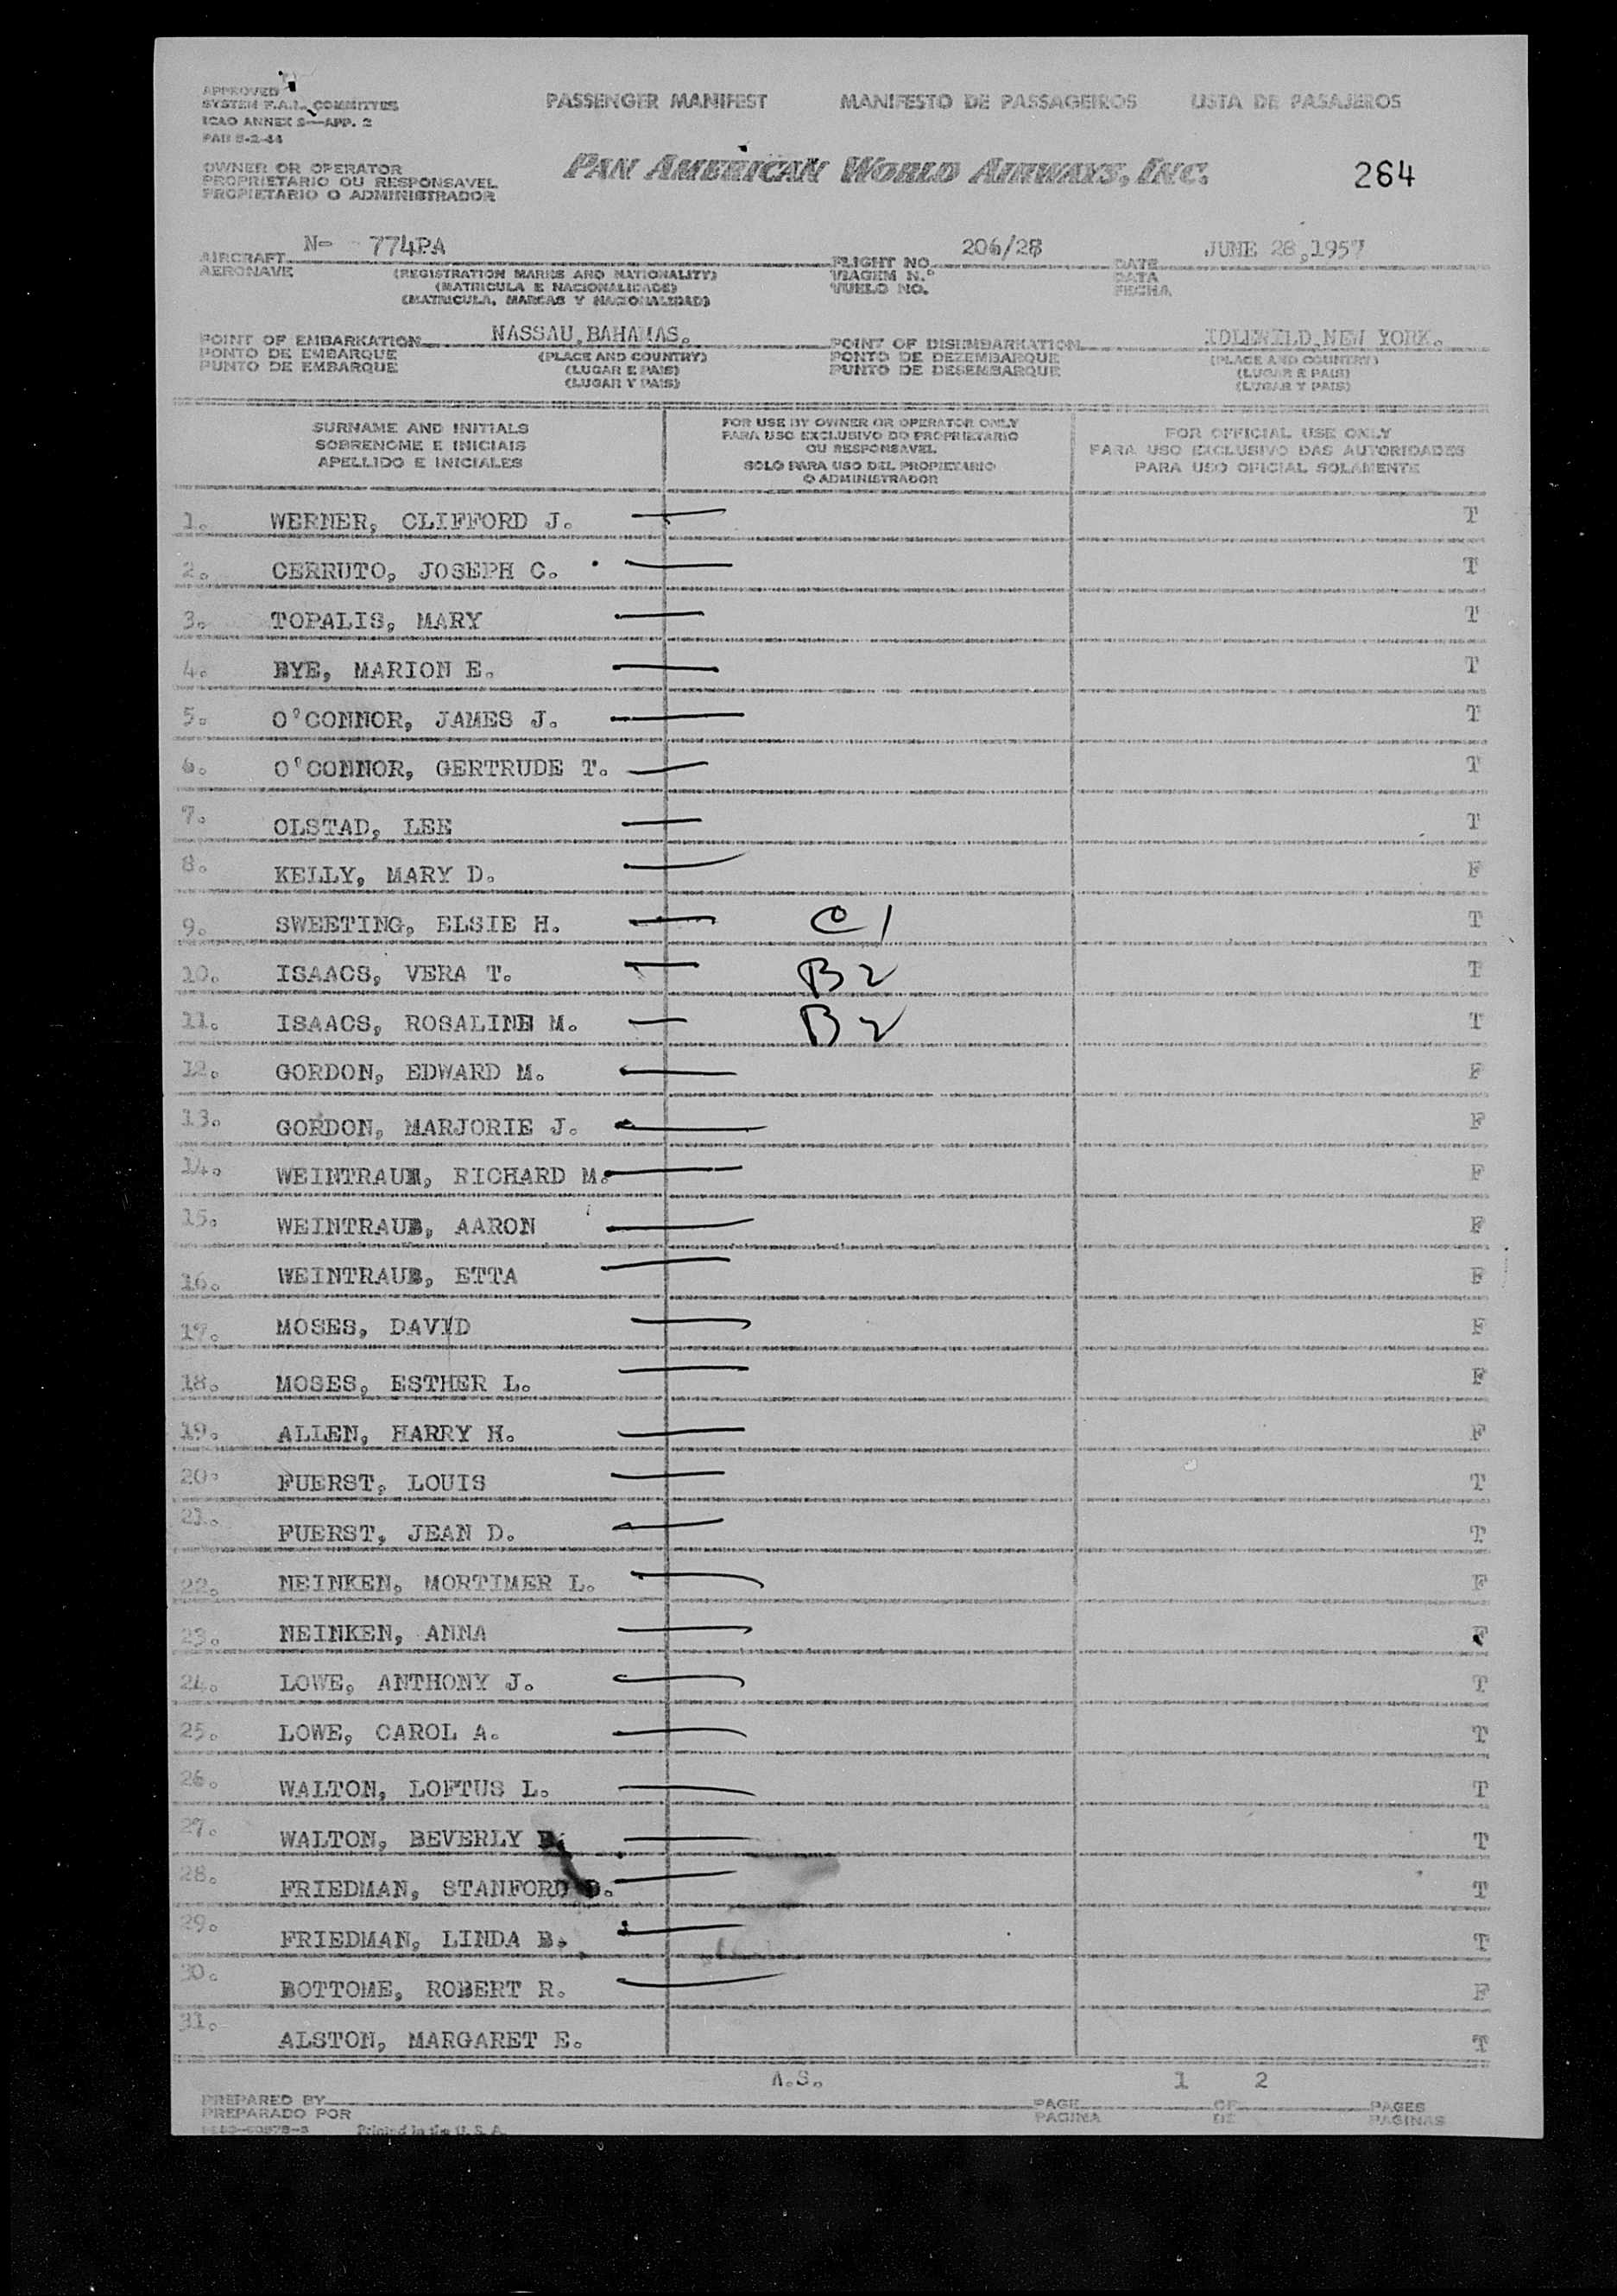 APPROVED
SYSTEM F.A.L. COMMITTEE
ICAO ANNEX 9—APP. 2
PASSENGER MANIFEST MANIFESTO DE PASSAGEIROS LISTA DE PASAJEROS
OWNER OR OPERATOR
PROPRIETARIO OU RESPONSAVEL
PROPIETARIO O ADMINISTRADOR
PAN AMERICAN WORLD AIRWAYS, INC.
264
AIRCRAFT N- 774PA FLIGHT NO. 206/28 DATE JUNE 28,1957
AERONAVE (REGISTRATION MARKS AND NATIONALITY) VIAGEM N.º DATA
(MATRICULA E NACIONALIDADE) VUELO NO. FECHA
(MATRICULA, MARCAS Y NACIONALIDAD)
POINT OF EMBARKATION NASSAU,BAHAMAS. POINT OF DISEMBARKATION IDLEWILD,NEW YORK.
PONTO DE EMBARQUE (PLACE AND COUNTRY) PONTO DE DEZEMBARQUE (PLACE AND COUNTRY)
PUNTO DE EMBARQUE (LUGAR E PAIS) PUNTO DE DESEMBARQUE (LUGAR E PAIS)
(LUGAR Y PAIS) (LUGAR Y PAIS)
SURNAME AND INITIALS
SOBRENOME E INICIAIS
APELLIDO E INICIALES
FOR USE BY OWNER OR OPERATOR ONLY
PARA USO EXCLUSIVO DO PROPRIETARIO
OU RESPONSAVEL
SOLO PARA USO DEL PROPIETARIO
O ADMINISTRADOR
FOR OFFICIAL USE ONLY
PARA USO EXCLUSIVO DAS AUTORIDADES
PARA USO OFICIAL SOLAMENTE
1. WERNER, CLIFFORD J. T
2. CERRUTO, JOSEPH C. T
3. TOPALIS, MARY T
4. BYE, MARION E. T
5. O'CONNOR, JAMES J. T
6. O'CONNOR, GERTRUDE T. T
7. OLSTAD, LEE T
8. KELLY, MARY D. F
9. SWEETING, ELSIE H. C1 T
10. ISAACS, VERA T. B2 T
11. ISAACS, ROSALINE M. B2 T
12. GORDON, EDWARD M. F
13. GORDON, MARJORIE J. F
14. WEINTRAUB, RICHARD M. F
15. WEINTRAUB, AARON F
16. WEINTRAUB, ETTA F
17. MOSES, DAVID F
18. MOSES, ESTHER L. F
19. ALLEN, HARRY H. F
20. FUERST, LOUIS T
21. FUERST, JEAN D. T
22. NEINKEN, MORTIMER L. F
23. NEINKEN, ANNA F
24. LOWE, ANTHONY J. T
25. LOWE, CAROL A. T
26. WALTON, LOFTUS L. T
27. WALTON, BEVERLY T
28. FRIEDMAN, STANFORD T
29. FRIEDMAN, LINDA B. T
30. BOTTOME, ROBERT R. F
31. ALSTON, MARGARET E. T
PREPARED BY A.S. PAGE 1 OF 2 PAGES
PREPARADO POR PAGINA DE PAGINAS
Printed in the U. S. A.